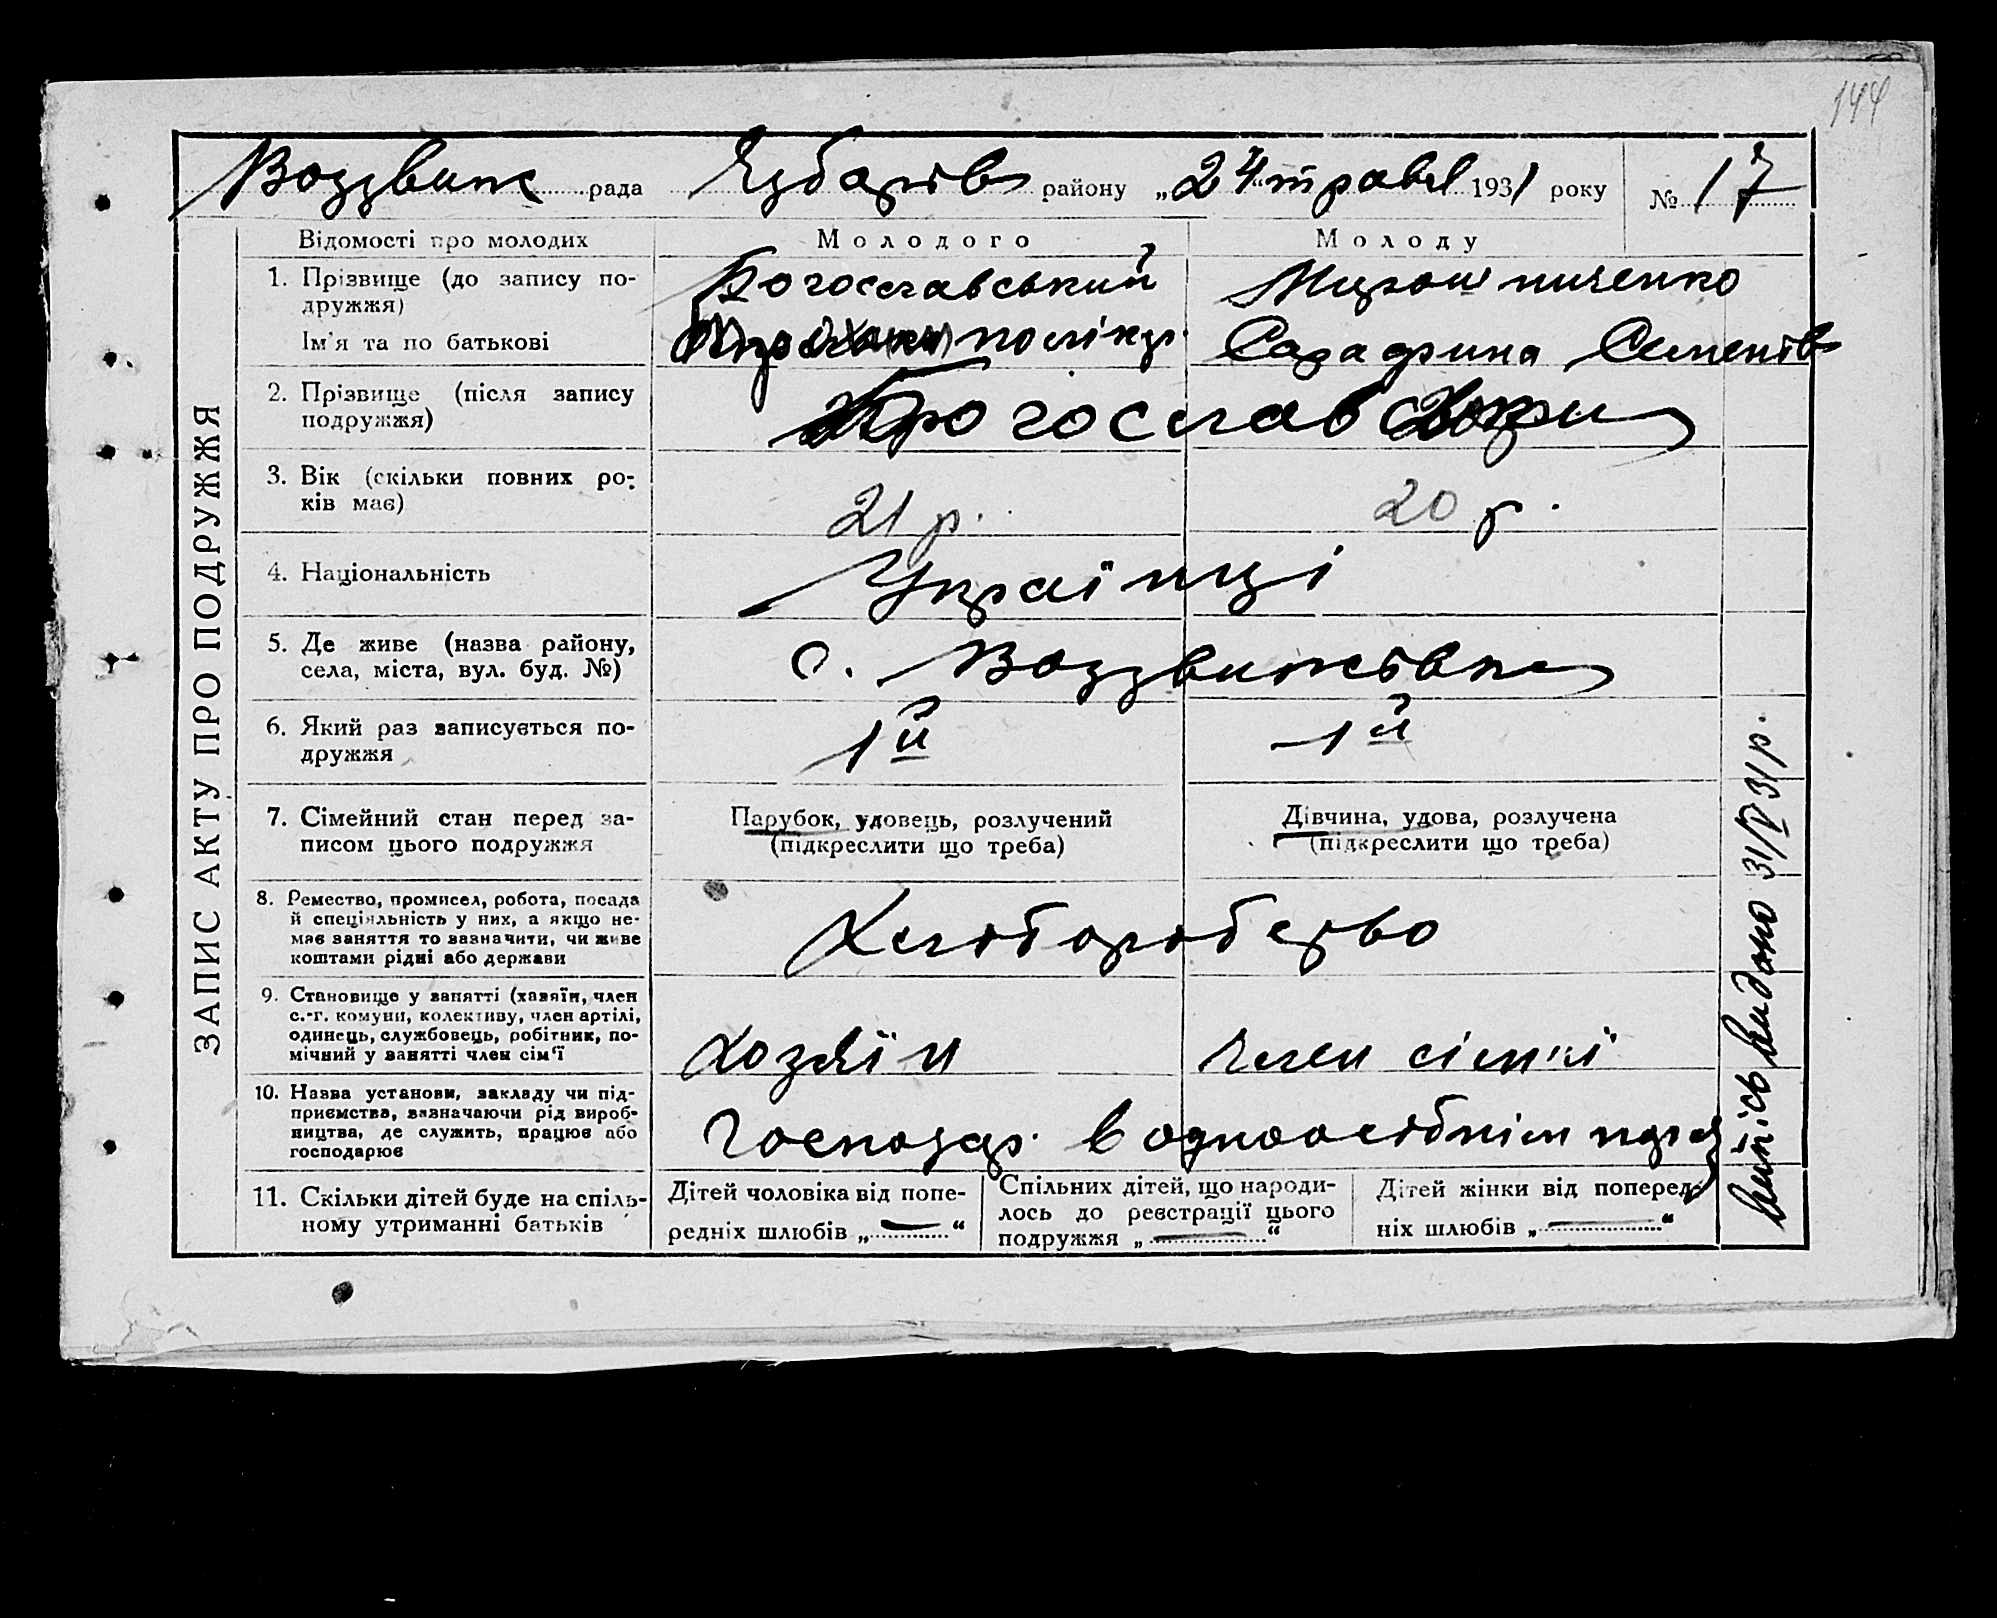 144
Воздвиж рада Ярбарів району „24“ травня 1931 року № 17
ЗАПИС АКТУ ПРО ПОДРУЖЖЯ
Відомості про молодих Молодого Молоду
1. Прізвище (до запису по-
дружжя) Богославський Мирошниченко
Ім'я та по батькові Серафима Семенів
2. Прізвище (після запису
подружжя) Богославськи
3. Вік (скільки повних ро-
ків має) 21 р. 20 р.
4. Національність Українці
5. Де живе (назва району,
села, міста, вул. буд. №) с. Воздвижівка
6. Який раз записується по-
дружжя 1й 1й
7. Сімейний стан перед за-
писом цього подружжя
Парубок, удовець, розлучений
(підкреслити що треба)
Дівчина, удова, розлучена
(підкреслити що треба)
8. Ремество, промисел, робота, посада
й спеціяльність у них, а якщо не-
має заняття то зазначити, чи живе
коштами рідні або держави
Хліборобство
9. Становище у занятті (хазяїн, член
с.-г. комуни, колективу, член артілі,
одинець, службовець, робітник, по-
мічний у занятті член сім'ї
Хозяїн член сімьї
10. Назва установи, закладу чи під-
приємства, зазначаючи рід вироб-
ництва, де служить, працює або
господарює
Господар. в одноосібнім
11. Скільки дітей буде на спіль-
ному утриманні батьків
Дітей чоловіка від попе-
редніх шлюбів „—“
Спільних дітей, що народи-
лось до реєстрації цього
подружжя „—“
Дітей жінки від поперед-
ніх шлюбів „—“
Випись видано 31/V 31 р.